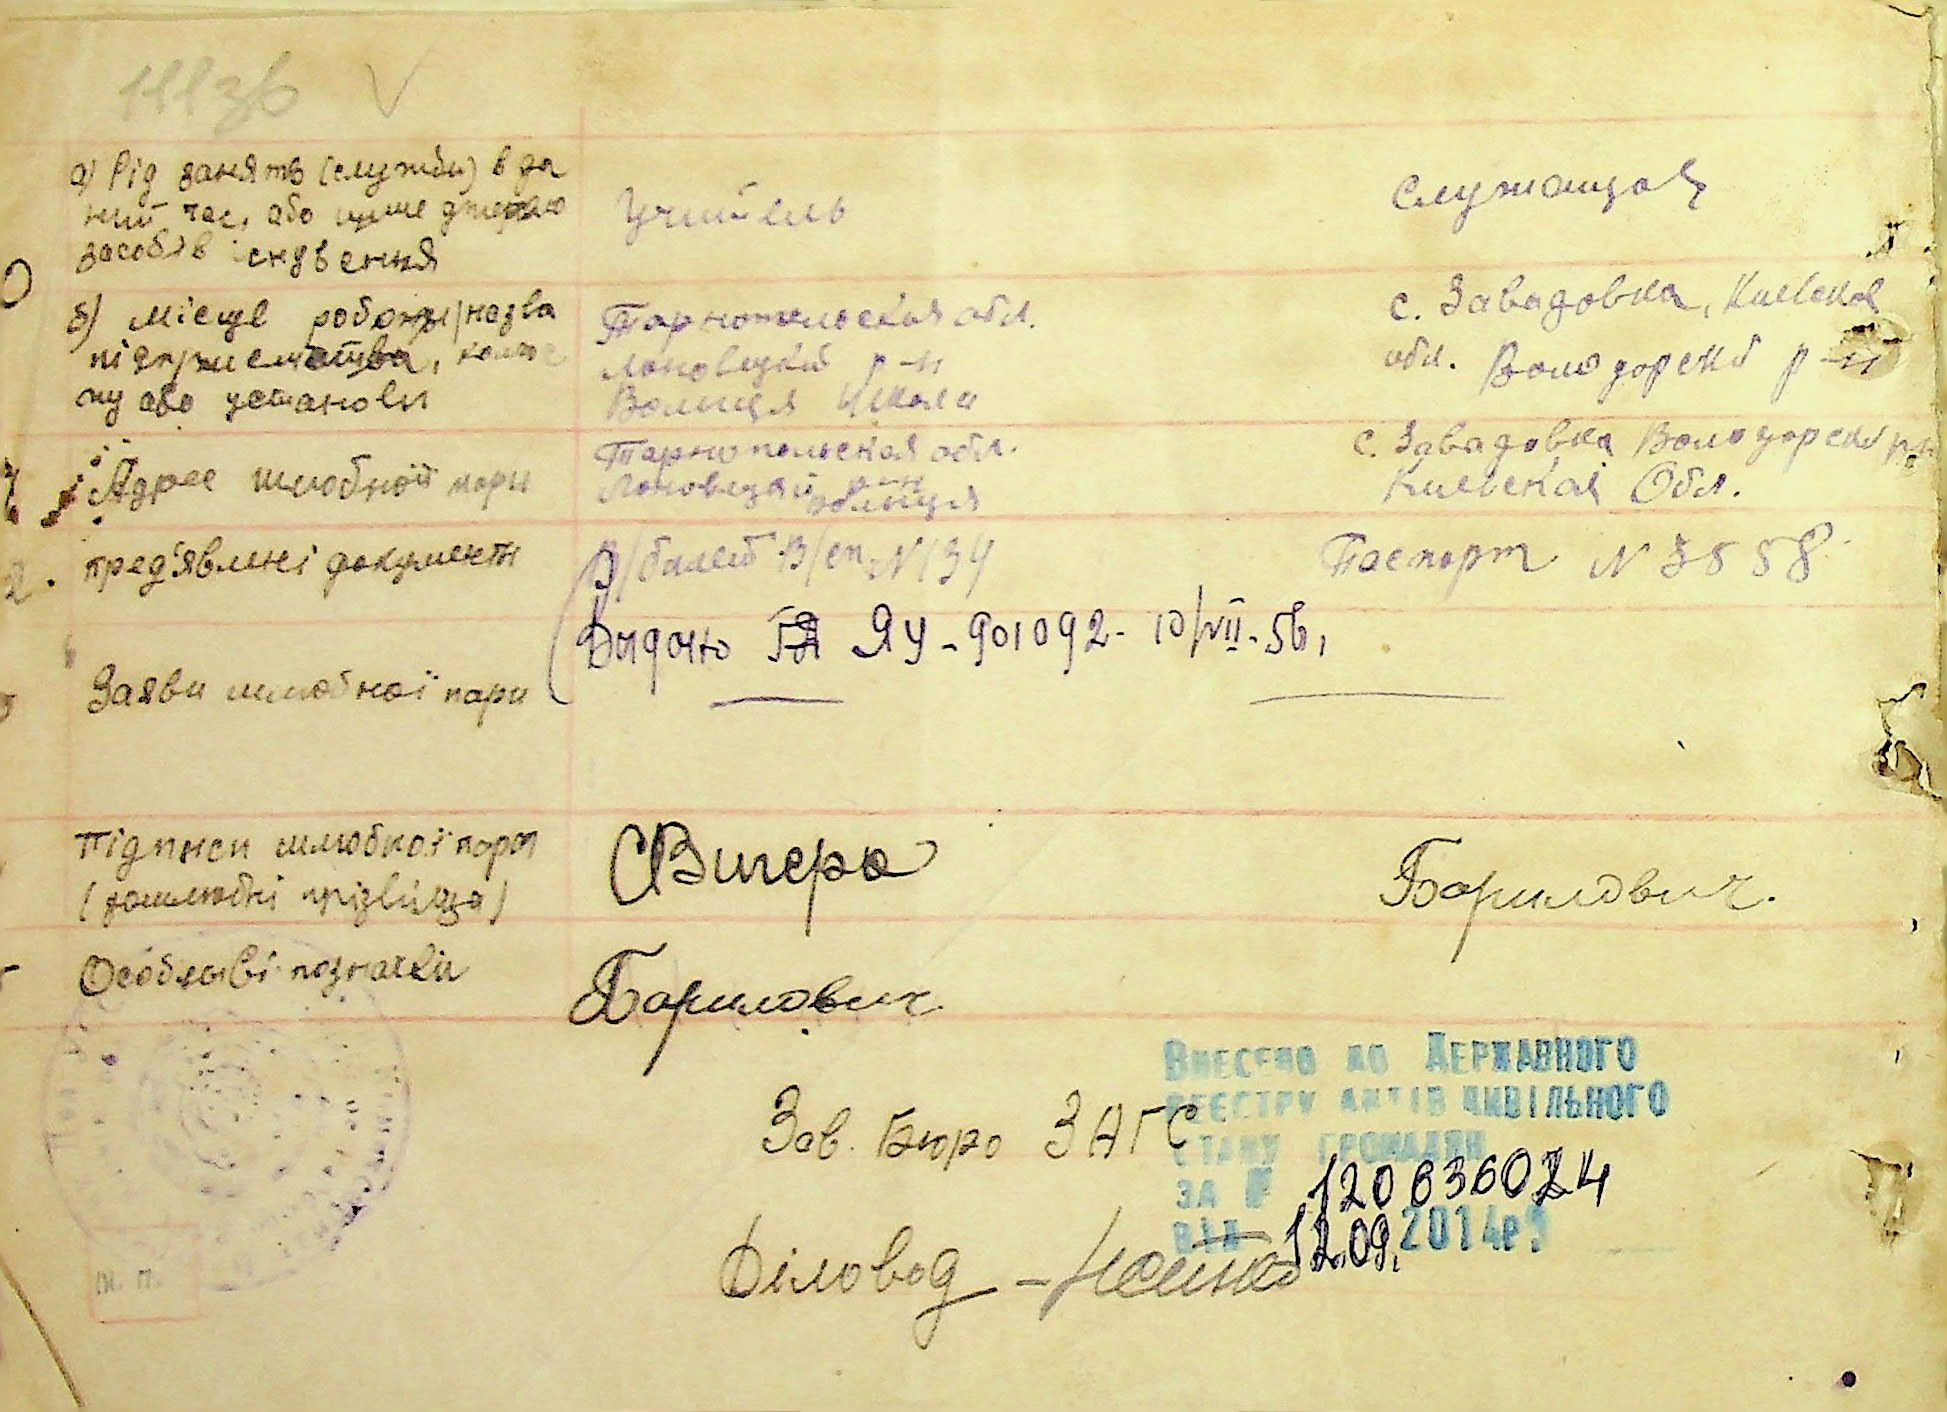 а) Рід занять (служби) в да
ний час, або инше джерело
засобів існувення
Учитель
Служащая
б) Місце роботи/назва
підприємства, колгос
пу або установи
Тарнопольская обл.
Лановецкий р-н
Волица Школа
с. Завадовка, Киевская
обл. Володорский р-н
Адрес шлюбної пари
Тарнопольская обл.
Лановецкий р-н
Волица
с. Завадовка Володорский р-н
Киевская Обл.
пред'явлені документи
В/билет В/сп. N 134
Паспорт N 3558
Видано ЯУ-901092- 10/VII-56,
Заяви шлюбної пари
Підписи шлюбної пари
(дошлюбні прізвища)
Вигера
Борилович.
Особливі познатки
Борилович.
Зав. Бюро ЗАГС
Діловод –
Внесено до Державного
реєстру актів цивільного
стану громадян
за №
від 12.09. 2014р
м. п.